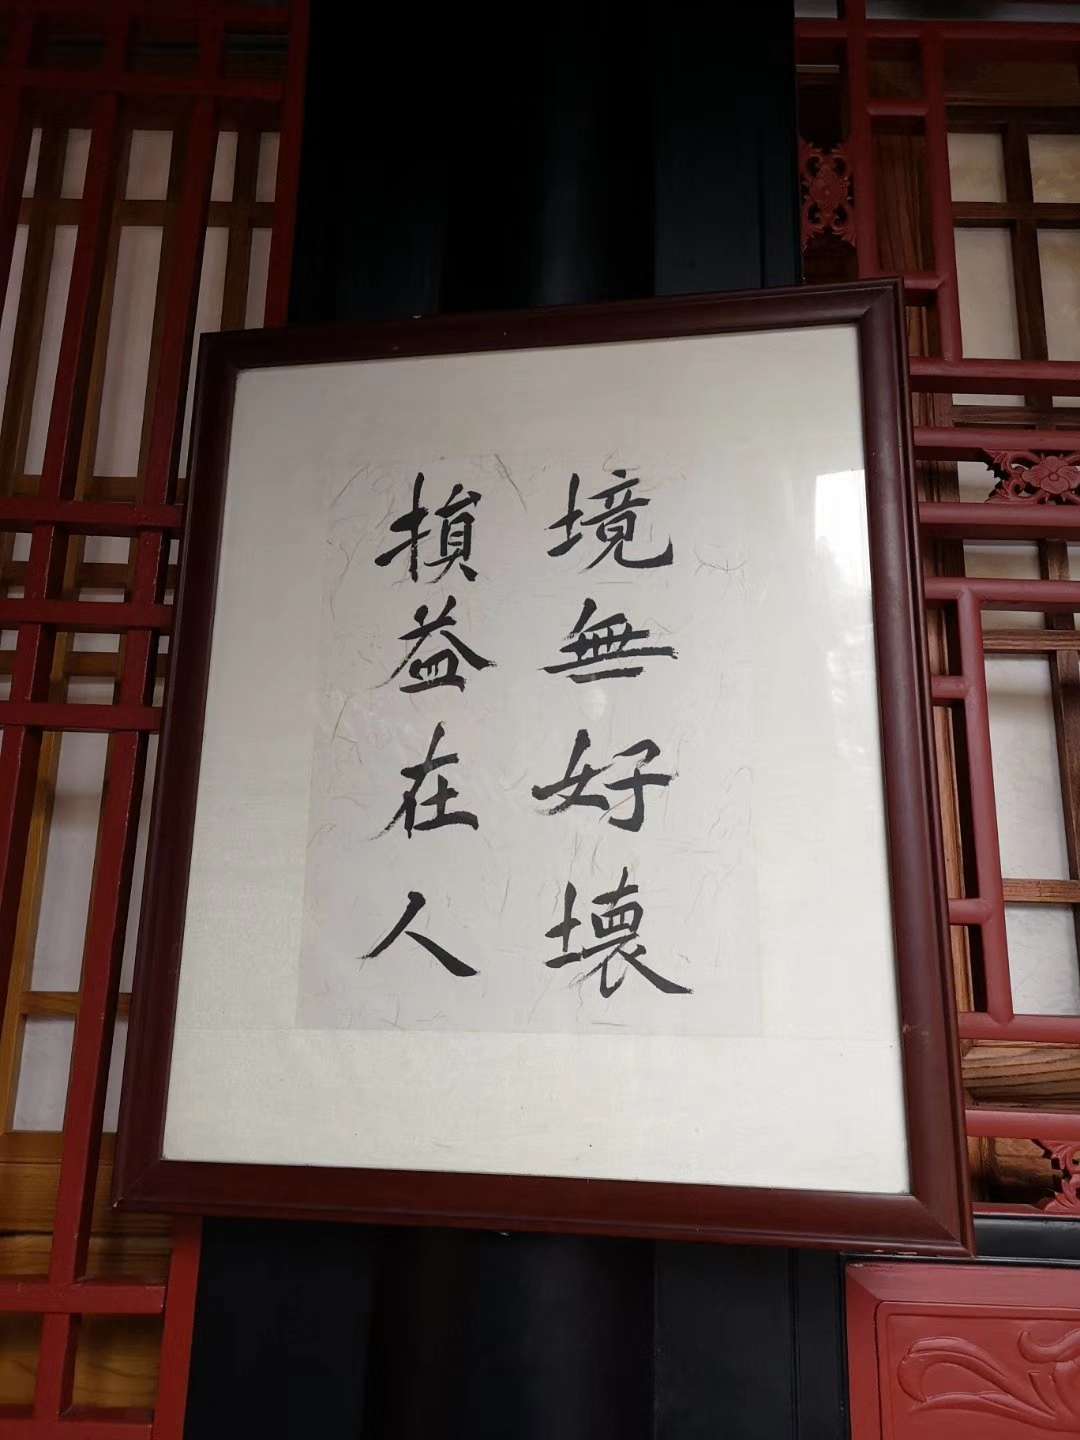 境無好壞
損益在人